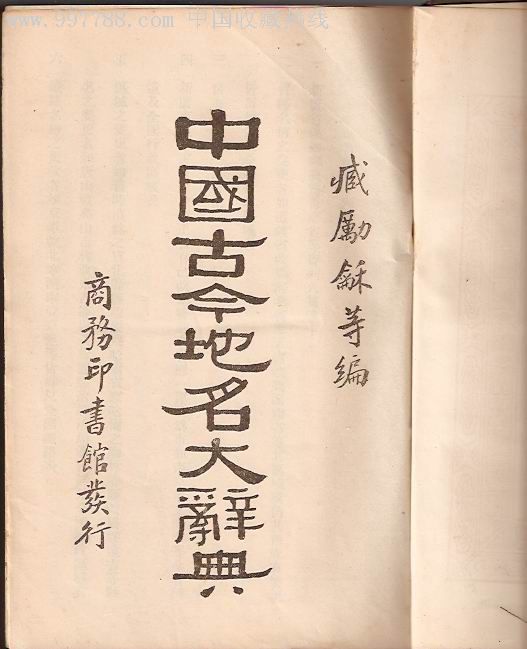 www.997788.com 中国收藏热线
臧勵龢等編
中國古今地名大辭典
商務印書館發行